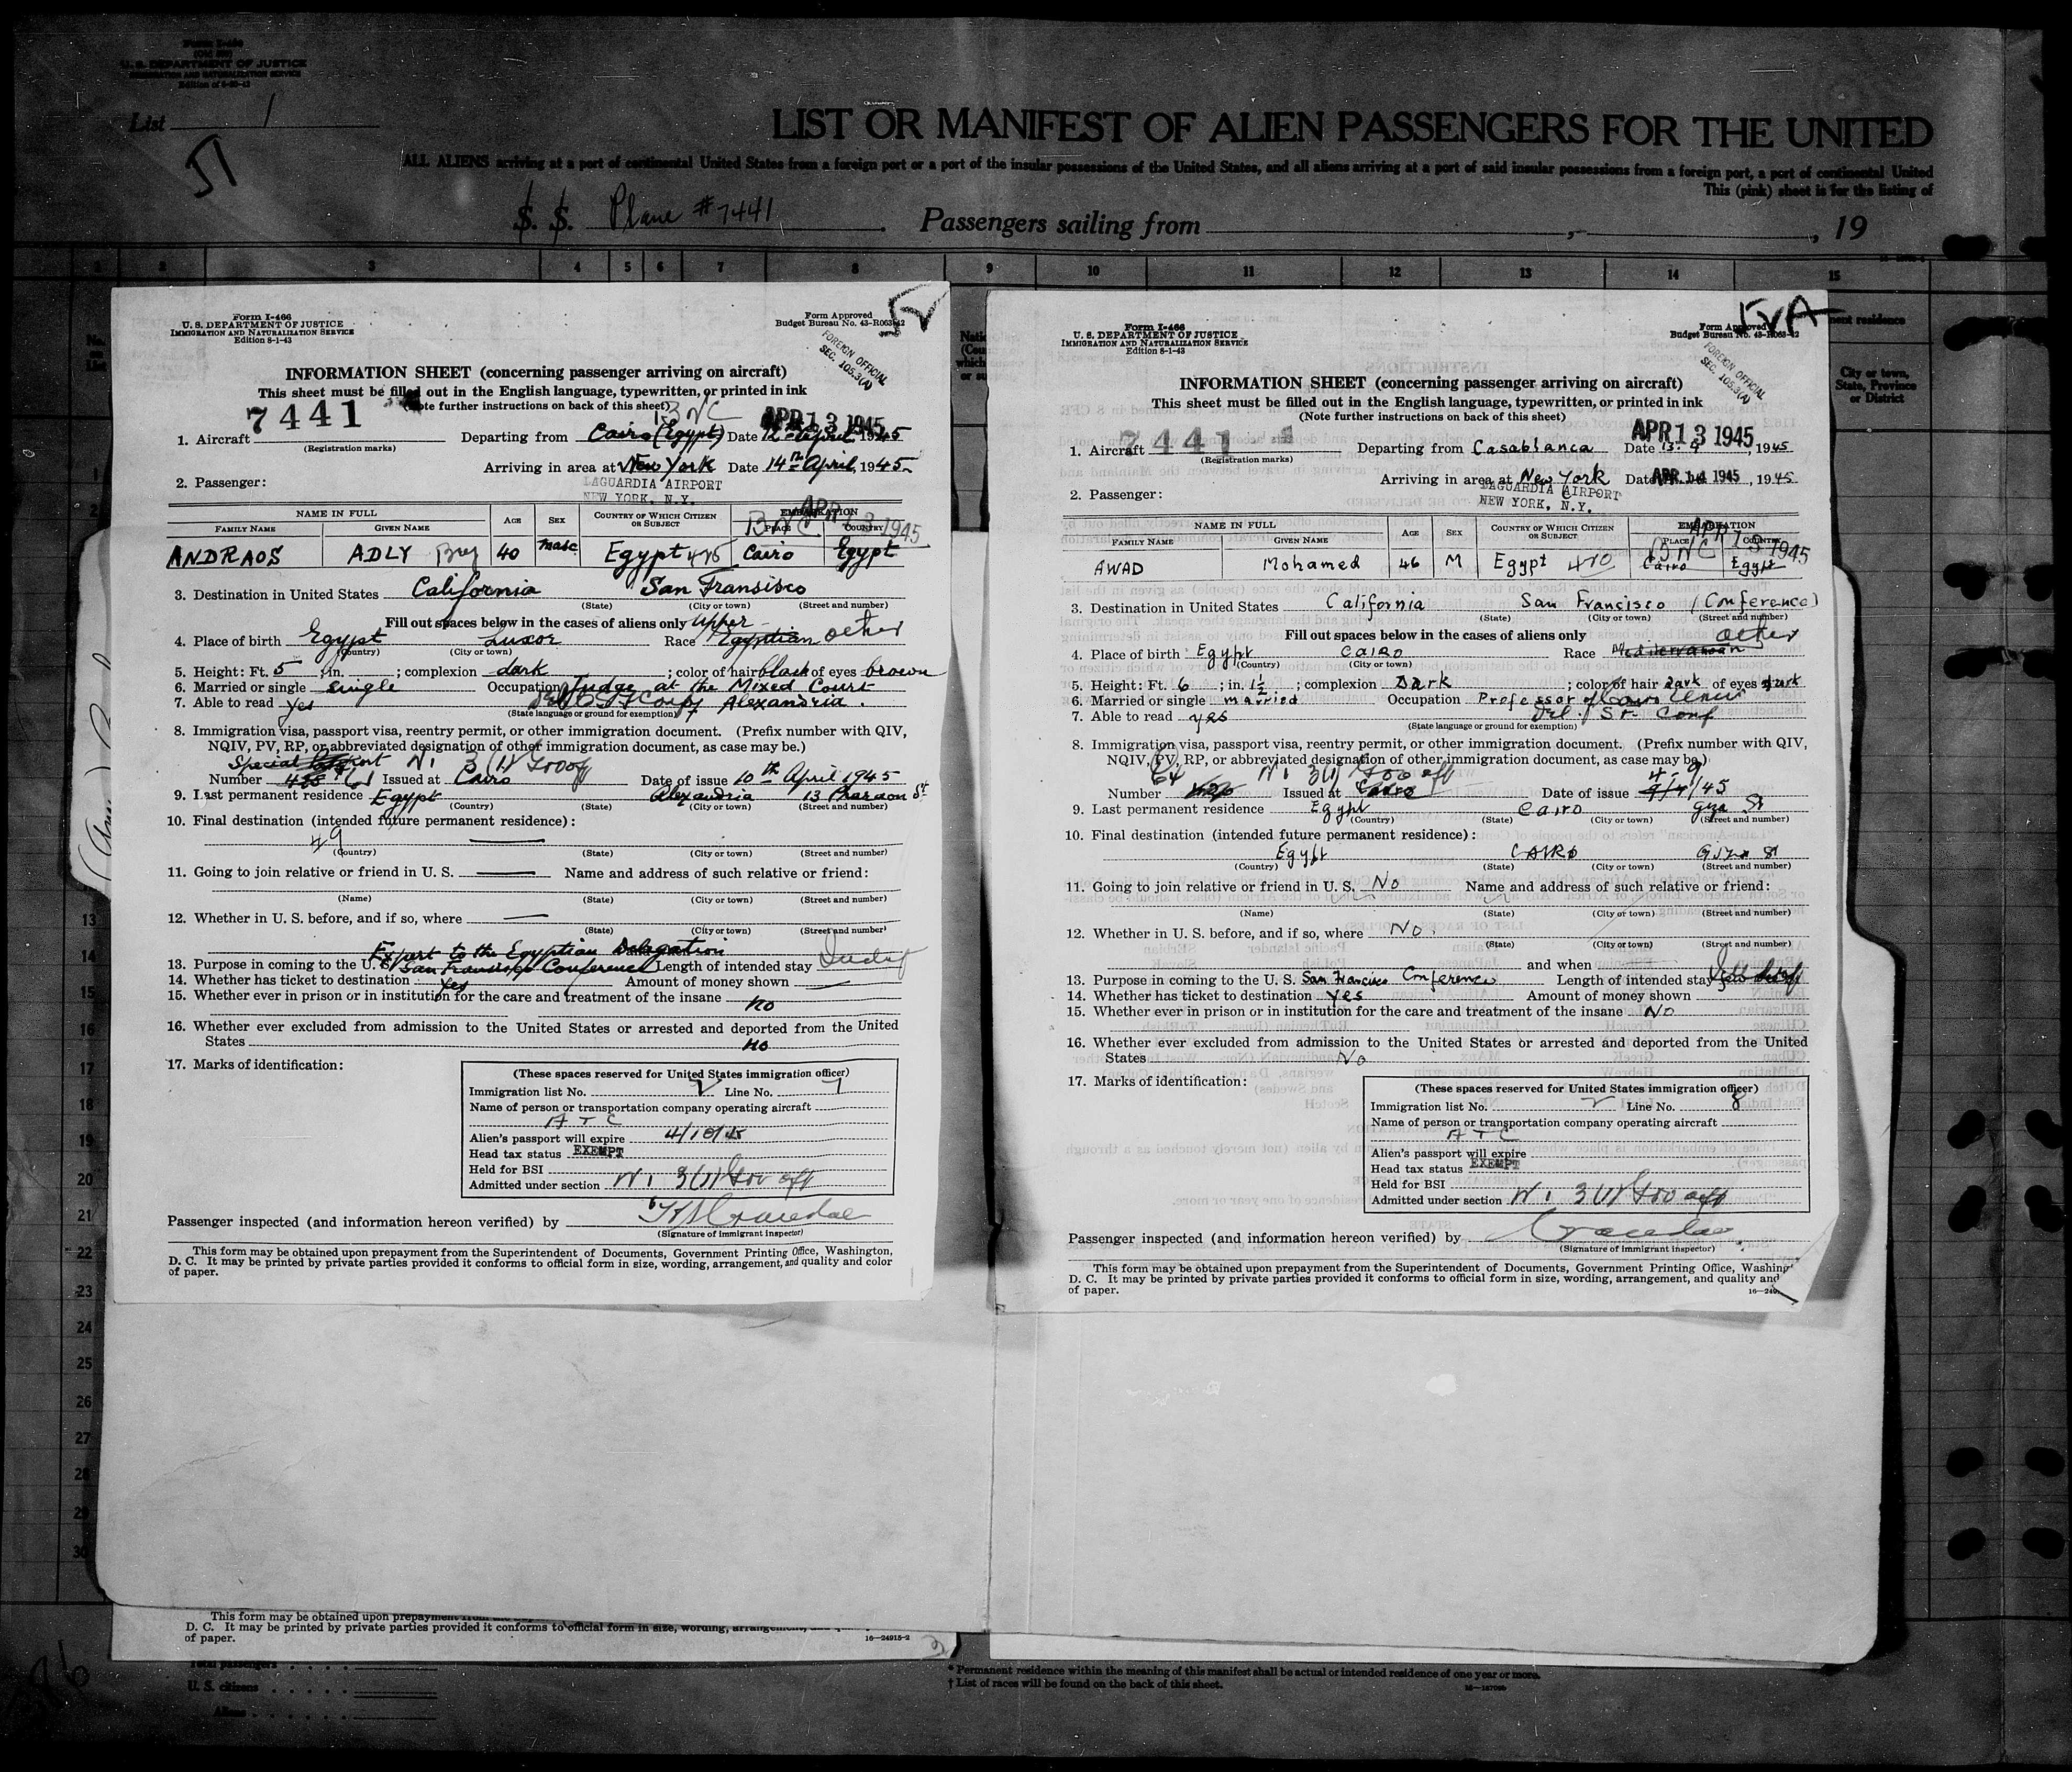 Form I-466
U. S. DEPARTMENT OF JUSTICE
IMMIGRATION AND NATURALIZATION SERVICE
List 1
51
LIST OR MANIFEST OF ALIEN PASSENGERS FOR THE UNITED
ALL ALIENS arriving at a port of continental United States from a foreign port or a port of the insular possessions of the United States, and all aliens arriving at a port of said insular possessions from a foreign port, a port of continental United
This (pink) sheet is for the listing of
S. S. Plane #7441. Passengers sailing from , , 19
1 2 3 4 5 6 7 8 9 10 11 12 13 14 15
Form I-466
U. S. DEPARTMENT OF JUSTICE
IMMIGRATION AND NATURALIZATION SERVICE
Edition 8-1-43
Form Approved
Budget Bureau No. 43-R063-42
52
FOREIGN OFFICIAL
SEC. 105.3(A)
INFORMATION SHEET (concerning passenger arriving on aircraft)
This sheet must be filled out in the English language, typewritten, or printed in ink
(Note further instructions on back of this sheet)
BNC
7441 APR 13 1945
1. Aircraft Departing from Cairo (Egypt) Date 12th April 1945
(Registration marks)
Arriving in area at New York Date 14th April, 1945
LAGUARDIA AIRPORT
NEW YORK, N.Y.
2. Passenger:
NAME IN FULL AGE SEX COUNTRY OF WHICH CITIZEN OR SUBJECT EMBARKATION
FAMILY NAME GIVEN NAME PLACE COUNTRY
BNC APR 13 1945
ANDRAOS ADLY Bey 40 male Egypt 475 Cairo Egypt
3. Destination in United States California San Fransisco
(State) (City or town) (Street and number)
Fill out spaces below in the cases of aliens only
4. Place of birth Egypt Luxor Upper Race Egyptian other
(Country) (City or town)
5. Height: Ft. 5 ; in. ; complexion dark ; color of hair black of eyes brown
6. Married or single single Occupation Judge at the Mixed Court
7. Able to read yes Alexandria.
(State language or ground for exemption)
8. Immigration visa, passport visa, reentry permit, or other immigration document. (Prefix number with QIV,
NQIV, PV, RP, or abbreviated designation of other immigration document, as case may be.)
Special
Number Issued at Cairo Date of issue 10th April 1945
9. Last permanent residence Egypt Alexandria 13 Pharaon St
(Country) (State) (City or town) (Street and number)
10. Final destination (intended future permanent residence):
49
(Country) (State) (City or town) (Street and number)
11. Going to join relative or friend in U. S. Name and address of such relative or friend:
(Name) (State) (City or town) (Street and number)
12. Whether in U. S. before, and if so, where
(State) (City or town) (Street and number)
Expert to the Egyptian Delegation
13. Purpose in coming to the U. S. San Fransisco Conference Length of intended stay Indef
14. Whether has ticket to destination Yes Amount of money shown
15. Whether ever in prison or in institution for the care and treatment of the insane no
16. Whether ever excluded from admission to the United States or arrested and deported from the United
States no
17. Marks of identification:
(These spaces reserved for United States immigration officer)
Immigration list No. 2 Line No. 7
Name of person or transportation company operating aircraft
ATC
Alien's passport will expire 4/10/45
Head tax status EXEMPT
Held for BSI
Admitted under section
Passenger inspected (and information hereon verified) by
(Signature of immigrant inspector)
This form may be obtained upon prepayment from the Superintendent of Documents, Government Printing Office, Washington,
D. C. It may be printed by private parties provided it conforms to official form in size, wording, arrangement, and quality and color
of paper.
Form I-466
U. S. DEPARTMENT OF JUSTICE
IMMIGRATION AND NATURALIZATION SERVICE
Edition 8-1-43
Form Approved
Budget Bureau No. 43-R063-42
52A
FOREIGN OFFICIAL
SEC. 105.3(A)
INFORMATION SHEET (concerning passenger arriving on aircraft)
This sheet must be filled out in the English language, typewritten, or printed in ink
(Note further instructions on back of this sheet)
7441 APR 13 1945
1. Aircraft Departing from Casablanca Date 13.4, 1945
(Registration marks)
Arriving in area at New York Date APR 14 1945, 1945
LAGUARDIA AIRPORT
NEW YORK, N.Y.
2. Passenger:
NAME IN FULL AGE SEX COUNTRY OF WHICH CITIZEN OR SUBJECT EMBARKATION
FAMILY NAME GIVEN NAME PLACE COUNTRY
BNC APR 13 1945
AWAD Mohamed 46 M Egypt 470 Cairo Egypt
3. Destination in United States California San Francisco (Conference)
(State) (City or town) (Street and number)
Fill out spaces below in the cases of aliens only
4. Place of birth Egypt CAIRO Race Mediterranean other
(Country) (City or town)
5. Height: Ft. 6 ; in. 1½ ; complexion Dark ; color of hair dark of eyes dark
6. Married or single married Occupation Professor of Cairo Univ
7. Able to read yes Del. S.F. Conf
(State language or ground for exemption)
8. Immigration visa, passport visa, reentry permit, or other immigration document. (Prefix number with QIV,
NQIV, PV, RP, or abbreviated designation of other immigration document, as case may be.)
Number Issued at Cairo Date of issue 9/4/45
9. Last permanent residence Egypt CAIRO Giza St
(Country) (State) (City or town) (Street and number)
10. Final destination (intended future permanent residence):
Egypt CAIRO Giza St
(Country) (State) (City or town) (Street and number)
11. Going to join relative or friend in U. S. No Name and address of such relative or friend:
(Name) (State) (City or town) (Street and number)
12. Whether in U. S. before, and if so, where No.
(State) (City or town) (Street and number)
and when
13. Purpose in coming to the U. S. San Francisco Conference Length of intended stay
14. Whether has ticket to destination yes Amount of money shown
15. Whether ever in prison or in institution for the care and treatment of the insane No
16. Whether ever excluded from admission to the United States or arrested and deported from the United
States No
17. Marks of identification:
(These spaces reserved for United States immigration officer)
Immigration list No. 2 Line No. 8
Name of person or transportation company operating aircraft
ATC
Alien's passport will expire
Head tax status EXEMPT
Held for BSI
Admitted under section
Passenger inspected (and information hereon verified) by
(Signature of immigrant inspector)
This form may be obtained upon prepayment from the Superintendent of Documents, Government Printing Office, Washing
D. C. It may be printed by private parties provided it conforms to official form in size, wording, arrangement, and quality and
of paper.
City or town,
State, Province
or District
13
14
15
16
17
18
19
20
21
22
23
24
25
26
27
28
29
30
This form may be obtained upon prepayment
D. C. It may be printed by private parties provided it conforms to official form in size, wording,
of paper.
16—24915-2
Total passengers
U. S. citizens
Aliens
* Permanent residence within the meaning of this manifest shall be actual or intended residence of one year or more.
† List of races will be found on the back of this sheet.